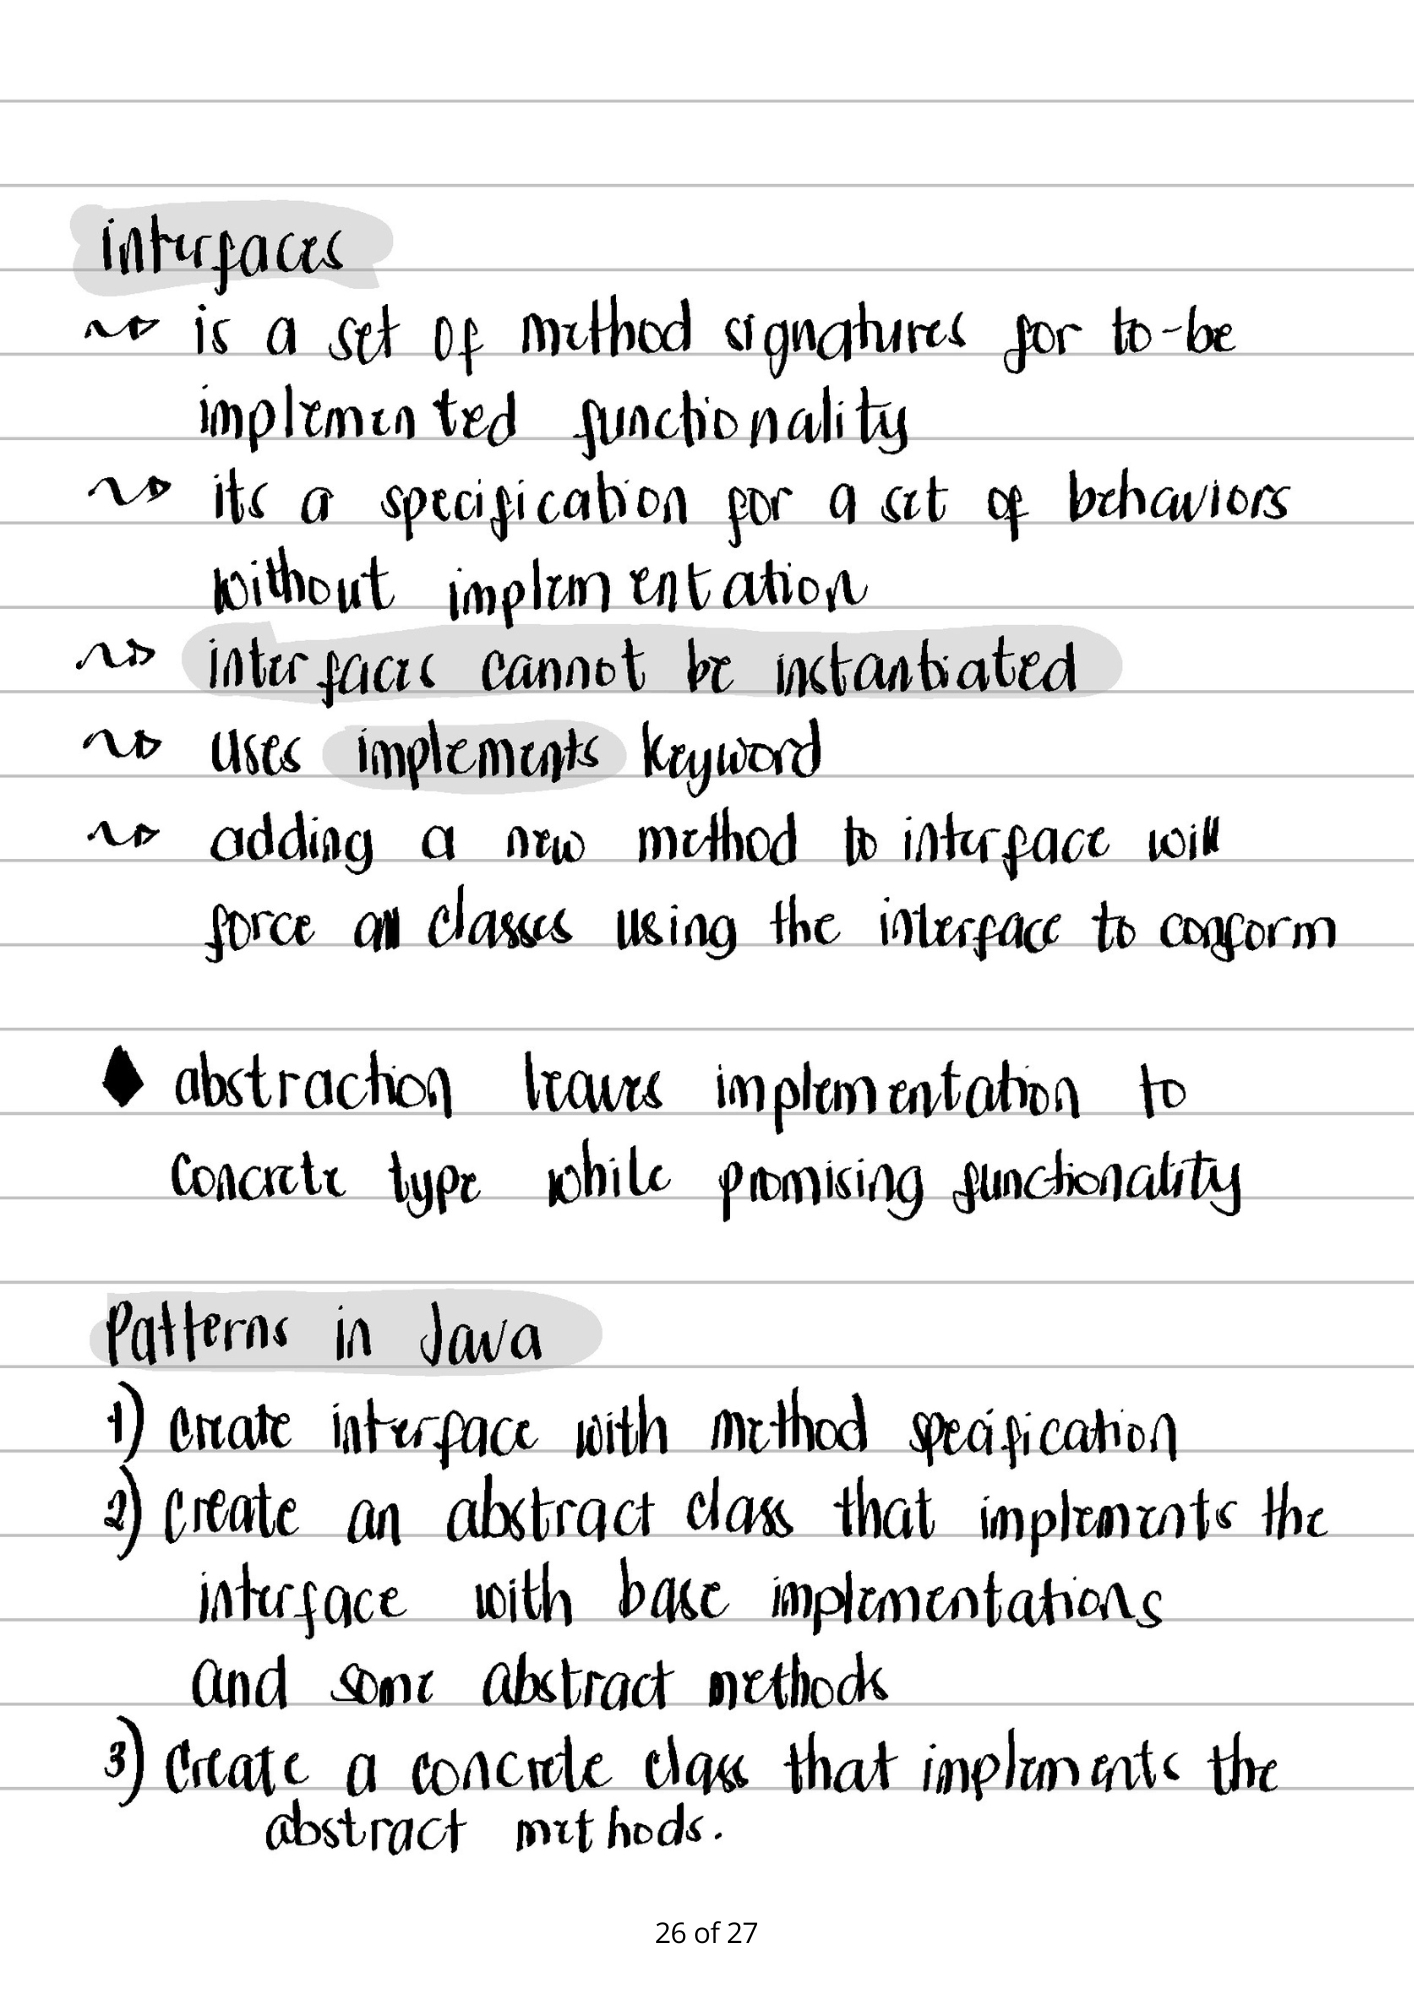 interfaces
is a set of method signatures for to-be
implemented functionality
its a specification for a set of behaviors
without implementation
interfaces cannot be instantiated
uses implements keyword
adding a new method to interface will
force all classes using the interface to conform
abstraction leaves implementation to
concrete type while promising functionality
Patterns in Java
1) create interface with method specification
2) create an abstract class that implements the
interface with base implementations
and some abstract methods
3) create a concrete class that implements the
abstract methods.
26 of 27